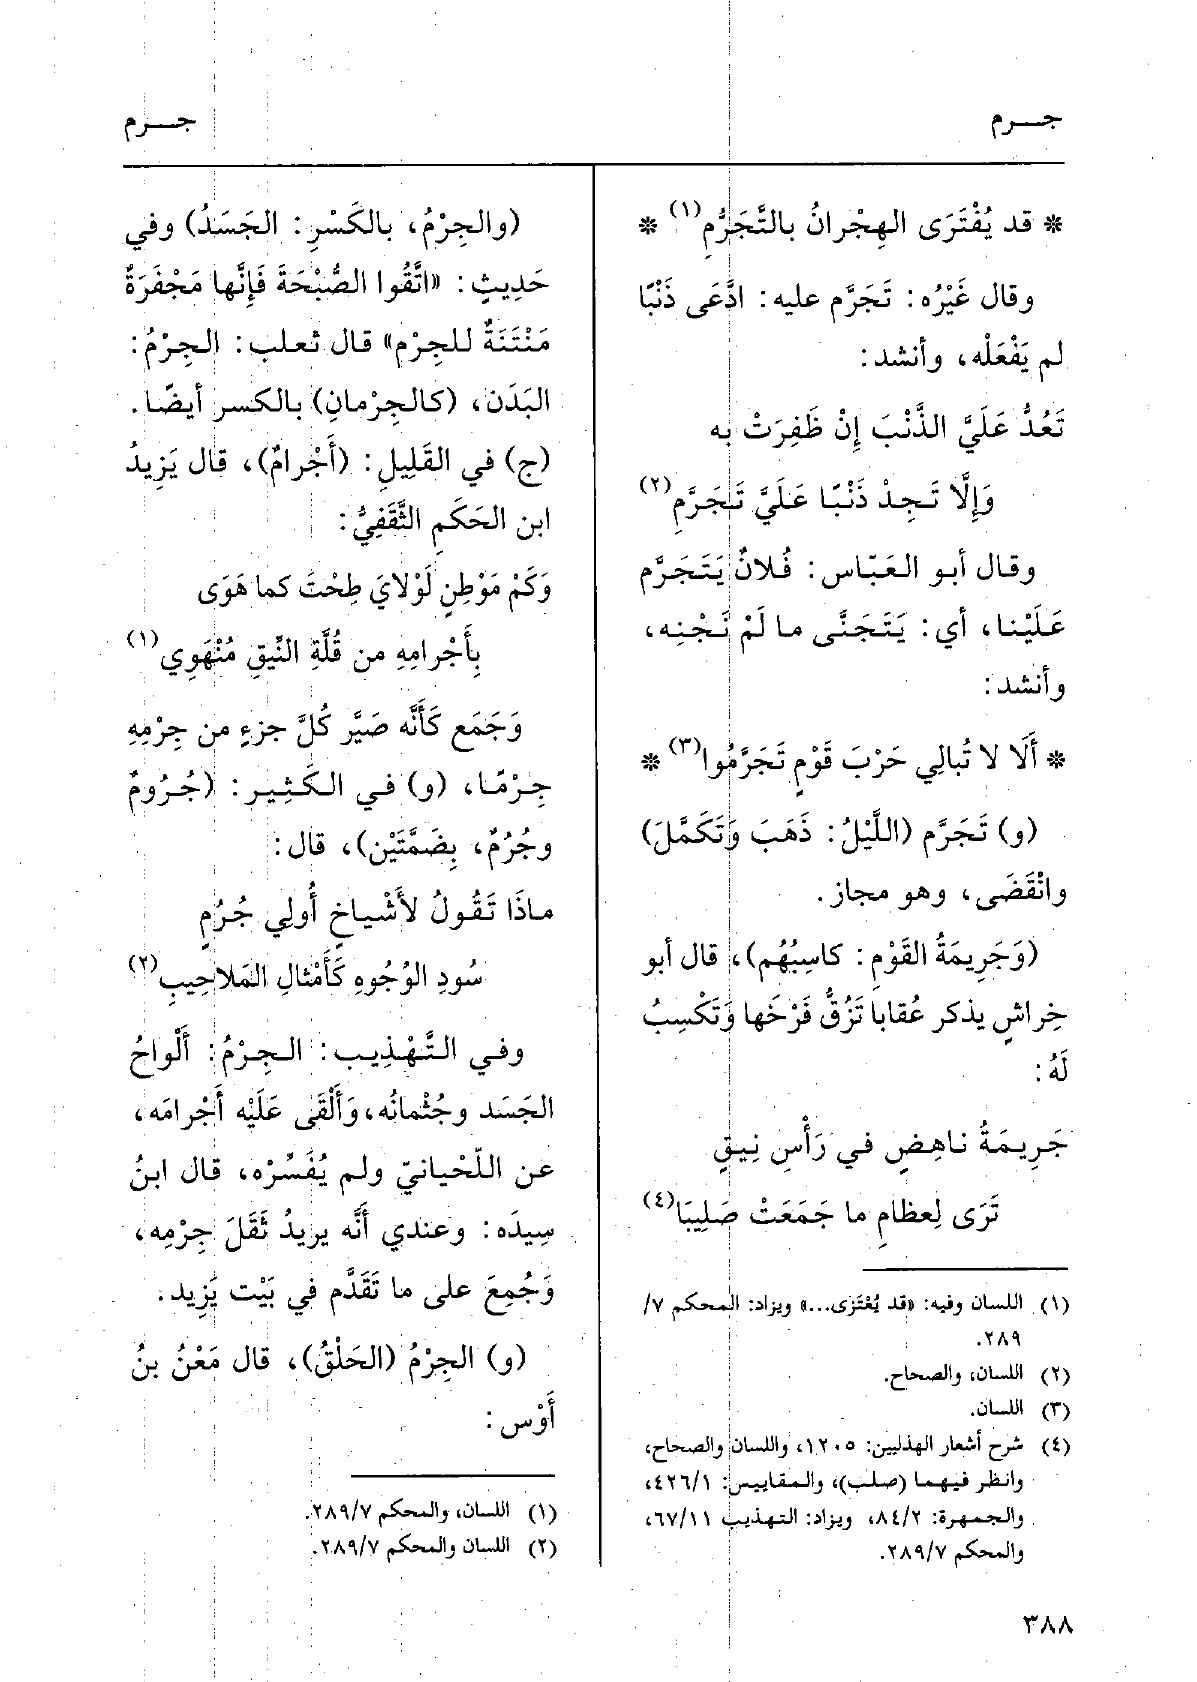 جــرم
جــرم
* قد يُفْتَرَى الهِجْرانُ بالتَّجَرُّمِ(١) *
وقال غَيْرُه: تَجَرَّم عليه: ادَّعَى ذَنْبًا
لم يَفْعَلْه، وأنشد:
تَعُدُّ عَلَيَّ الذَّنْبَ إِنْ ظَفِرَتْ به
وَإِلَّا تَجِدْ ذَنْبًا عَلَيَّ تَجَرَّمِ(٢)
وقال أبو العَبّاس: فُلانٌ يَتَجَرَّم
عَلَيْنا، أي: يَتَجَنَّى ما لَمْ نَجْنِه،
وأنشد:
* أَلَا لا تُبالِي حَرْبَ قَوْمٍ تَجَرَّمُوا(٣) *
(و) تَجَرَّم (اللَّيْلُ: ذَهَبَ وَتَكَمَّلَ)
وانْقَضَى، وهو مجاز.
(وَجَرِيمَةُ القَوْمِ: كاسِبُهُم)، قال أبو
خِراشٍ يذكر عُقابا تَزُقُّ فَرْخَها وَتَكْسِبُ
لَهُ:
جَرِيمَةُ ناهِضٍ في رَأْسِ نِيقٍ
تَرَى لِعظامِ ما جَمَعَتْ صَلِيبَا(٤)
(١) اللسان وفيه: «قد يُعْتَزى...» ويزاد: المحكم ٧/
٢٨٩.
(٢) اللسان، والصحاح.
(٣) اللسان.
(٤) شرح أشعار الهذليين: ١٢٠٥، واللسان والصحاح،
وانظر فيهما (صلب)، والمقاييس: ٤٢٦/١،
والجمهرة: ٨٤/٢، ويزاد: التهذيب ٦٧/١١،
والمحكم ٢٨٩/٧.
(والجِرْمُ، بالكَسْرِ: الجَسَدُ) وفي
حَدِيثٍ: «اتَّقُوا الصُّبْحَةَ فَإِنَّها مَجْفَرَةٌ
مَنْتَنَةٌ للجِرْمِ» قال ثعلب: الجِرْمُ:
البَدَن، (كالجِرْمانِ) بالكسر أيضًا.
(ج) في القَلِيلِ: (أَجْرامٌ)، قال يَزِيدُ
ابن الحَكَمِ الثَّقَفِيُّ:
وَكَمْ مَوْطِنٍ لَوْلايَ طِحْتَ كما هَوَى
بِأَجْرامِهِ من قُلَّةِ النِّيقِ مُنْهَوِي(١)
وَجَمَع كَأَنَّه صَيَّر كُلَّ جزءٍ من جِرْمِهِ
جِرْمًا، (و) في الكَثِيرِ: (جُرُومٌ
وجُرُمٌ، بِضَمَّتَيْن)، قال:
ماذَا تَقُولُ لأَشْياخٍ أُولِي جُرُمٍ
سُودِ الوُجُوهِ كَأَمْثالِ المَلاحِيبِ(٢)
وفي التَّهْذِيب: الجِرْمُ: أَلْواحُ
الجَسَد وجُثْمانُه، وَأَلْقَى عَلَيْه أَجْرامَه،
عن اللّحْيانيّ ولم يُفَسِّرْه، قال ابنُ
سِيدَه: وعندي أَنَّه يريدُ ثَقَلَ جِرْمِه،
وَجُمِعَ على ما تَقَدَّم في بَيْت يَزِيد.
(و) الجِرْمُ (الحَلْقُ)، قال مَعْنُ بنُ
أَوْس:
(١) اللسان، والمحكم ٢٨٩/٧.
(٢) اللسان والمحكم ٢٨٩/٧.
٣٨٨